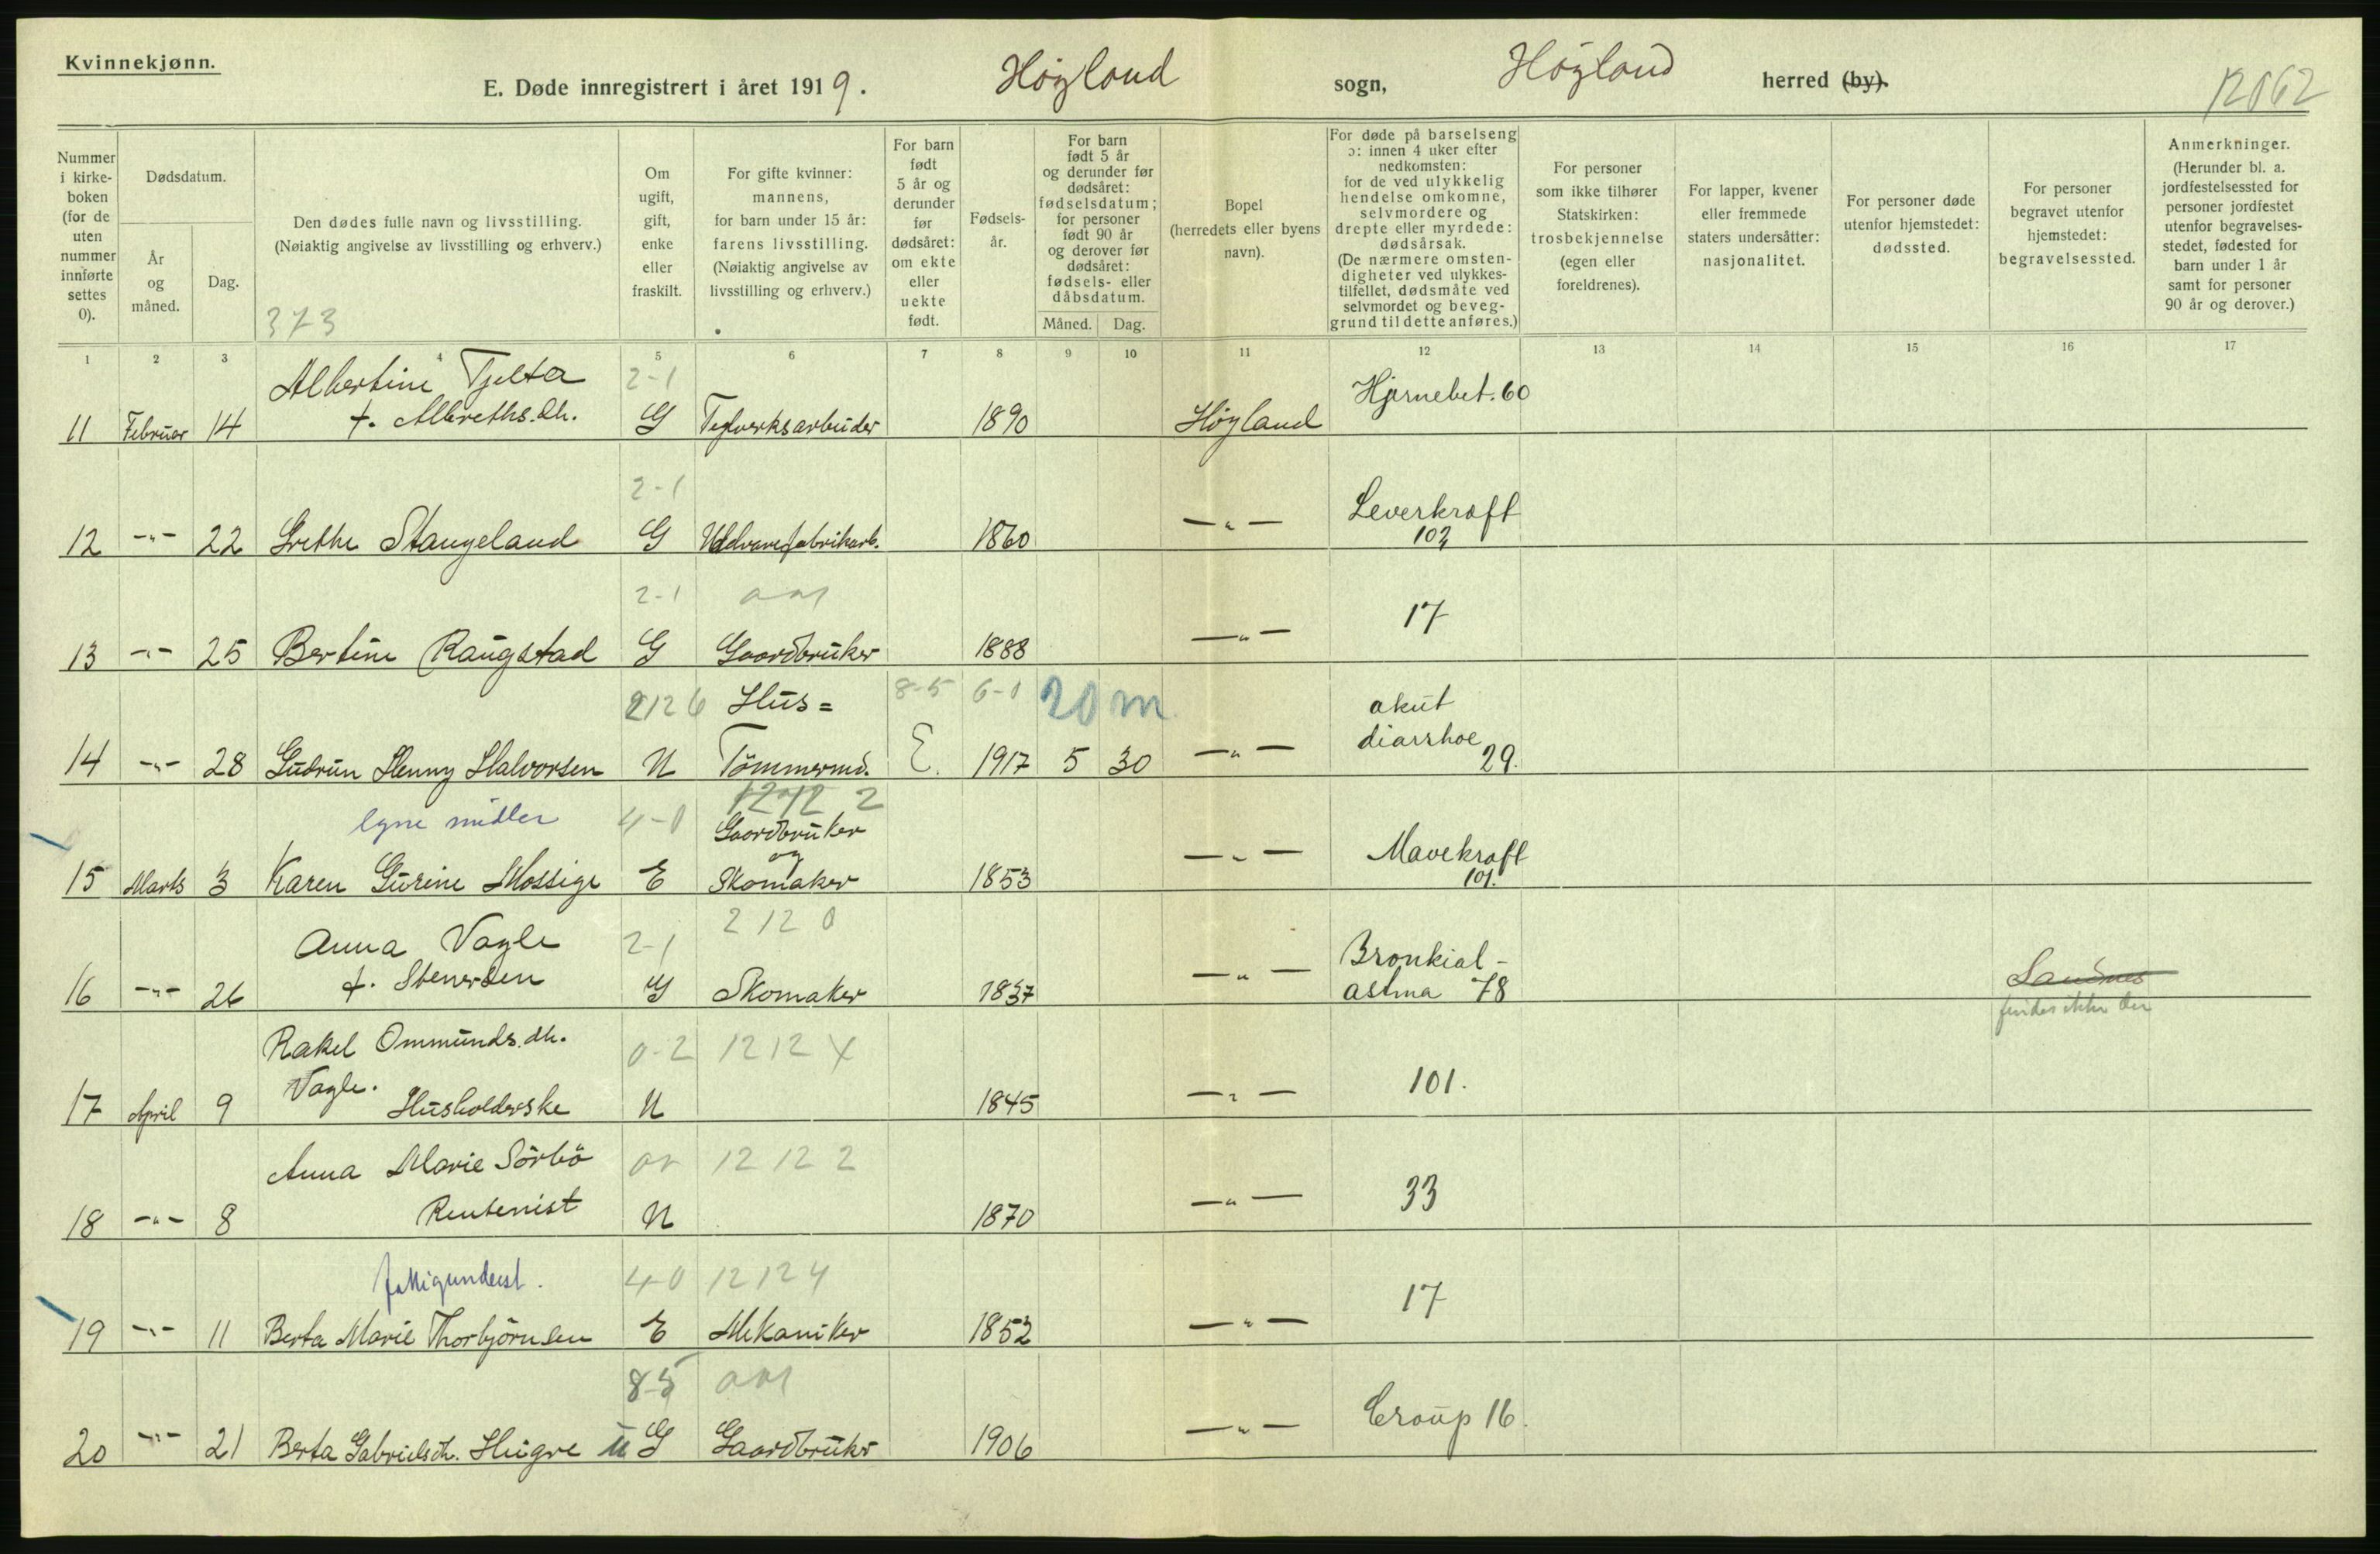 Kvinnekjønn.
E. Døde innregistrert i året 1919. Høyland sogn, Høyland herred (by).
12062
Nummer i kirke-boken (for de uten nummer innførte settes 0).
Dødsdatum.
År og måned.
Dag.
Den dødes fulle navn og livsstilling.
(Nøiaktig angivelse av livsstilling og erhverv.)
373
Om ugift, gift, enke eller fraskilt.
For gifte kvinner: mannens, for barn under 15 år: farens livsstilling. (Nøiaktig angivelse av livsstilling og erhverv.)
For barn født 5 år og derunder før dødsåret: om ekte eller uekte født.
Fødsels-år.
For barn født 5 år og derunder før dødsåret: fødselsdatum; for personer født 90 år og derover før dødsåret: fødsels- eller dåbsdatum.
Måned. Dag.
Bopel (herredets eller byens navn).
For døde på barselseng ɔ: innen 4 uker efter nedkomsten: for de ved ulykkelig hendelse omkomne, selvmordere og drepte eller myrdede: dødsårsak. (De nærmere omsten-digheter ved ulykkes-tilfellet, dødsmåte ved selvmordet og beveg-grund til dette anføres.)
For personer som ikke tilhører Statskirken: trosbekjennelse (egen eller foreldrenes).
For lapper, kvener eller fremmede staters undersåtter: nasjonalitet.
For personer døde utenfor hjemstedet: dødssted.
For personer begravet utenfor hjemstedet: begravelsessted.
Anmerkninger. (Herunder bl. a. jordfestelsessted for personer jordfestet utenfor begravelses-stedet, fødested for barn under 1 år samt for personer 90 år og derover.)
1 2 3 4 5 6 7 8 9 10 11 12 13 14 15 16 17
Albertine Tjelta 2-1 Hjernebet. 60
11 Februar 14 f. Albreths.dh. G Teglverksarbeider 1890 Høyland
2-1 Leverkræft
12 -"- 22 Grethe Stangeland G Uldvarefabrikarb. 1860 -"- 103
2-1 17
13 -"- 25 Bertine Raugstad G Gaardbruker 1888 -"-
2126 Hus= 8-5 6-1 20 m akut
14 -"- 28 Gudrun Henny Halvorsen U Tömmerm. E. 1917 5 30 -"- diarrhoe 29.
12 12 2
egne midler 4-0 Gaardbruker Mavekræft
15 Marts 3 Karen Gurine Mossige E og Skomaker 1853 -"- 101.
2 12 0
Anna Vagle 2-1 Bronkial-
16 -"- 26 f. Stenersen G Skomaker 1837 -"- astma 78 Sandnes
findes ikke der
Rakel Ommunds.dh. 0-2 12 12 X
17 April 9 Vagle. Husholderske U 1845 -"- 101.
Anna Marie Sörbö 12 12 2
18 -"- 8 Rentenist U 1870 -"- 33
fattigunderst. 4-0 12 12 4 17
19 -"- 11 Berta Marie Thorbjörnsen E Mekaniker 1852 -"-
8-5 Croup 16.
20 -"- 21 Berta Gabrielsdh. Hugre u G Gaardbruker 1906 -"-